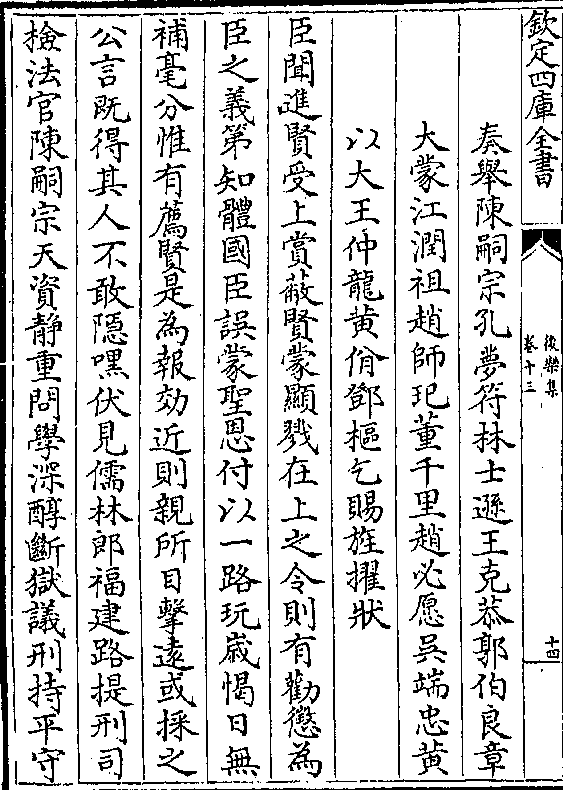 欽定四庫全書
後樂集
卷十三
十四
奏舉陳嗣宗孔夢符林士遜王克恭郭伯良章
大蒙江潤祖趙師玘董千里趙必愿吳端忠黄
以大王仲龍黄㑺鄧樞乞賜旌擢狀
臣聞進賢受上賞蔽賢蒙顯戮在上之令則有勸懲為
臣之義第知體國臣誤蒙聖恩付以一路玩歳愒日無
補毫分惟有薦賢是為報効近則親所目擊遠或採之
公言既得其人不敢隐嘿伏見儒林郎福建路提刑司
檢法官陳嗣宗天資静重問學深醇斷獄議刑持平守